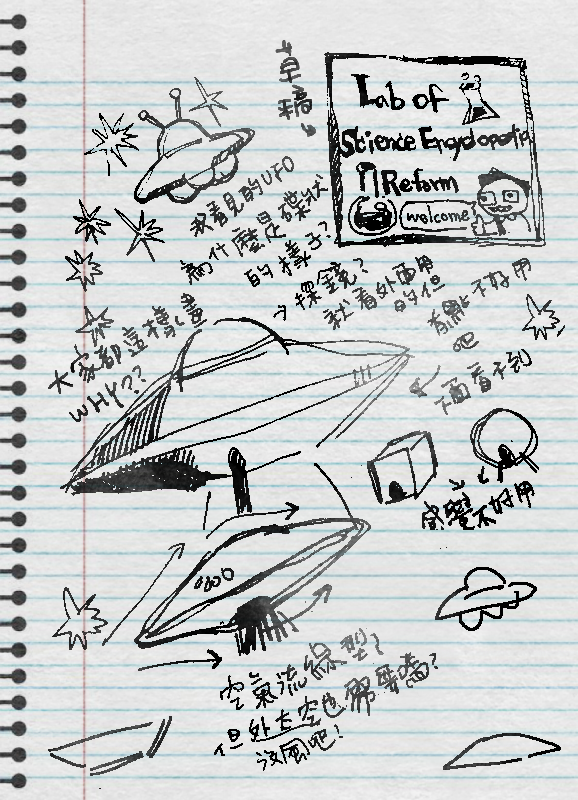 草稿
Lab of
Science Encyclopedia
Reform
welcome
我看見的UFO
為什麼是碟狀
的樣子?
→探鏡?
就看外面用
的但
有點不好用
吧
下面看不到
大家都這樣畫
WHY??
感覺不好用
空氣流線型?
但外太空也需要嗎?
沒風吧!